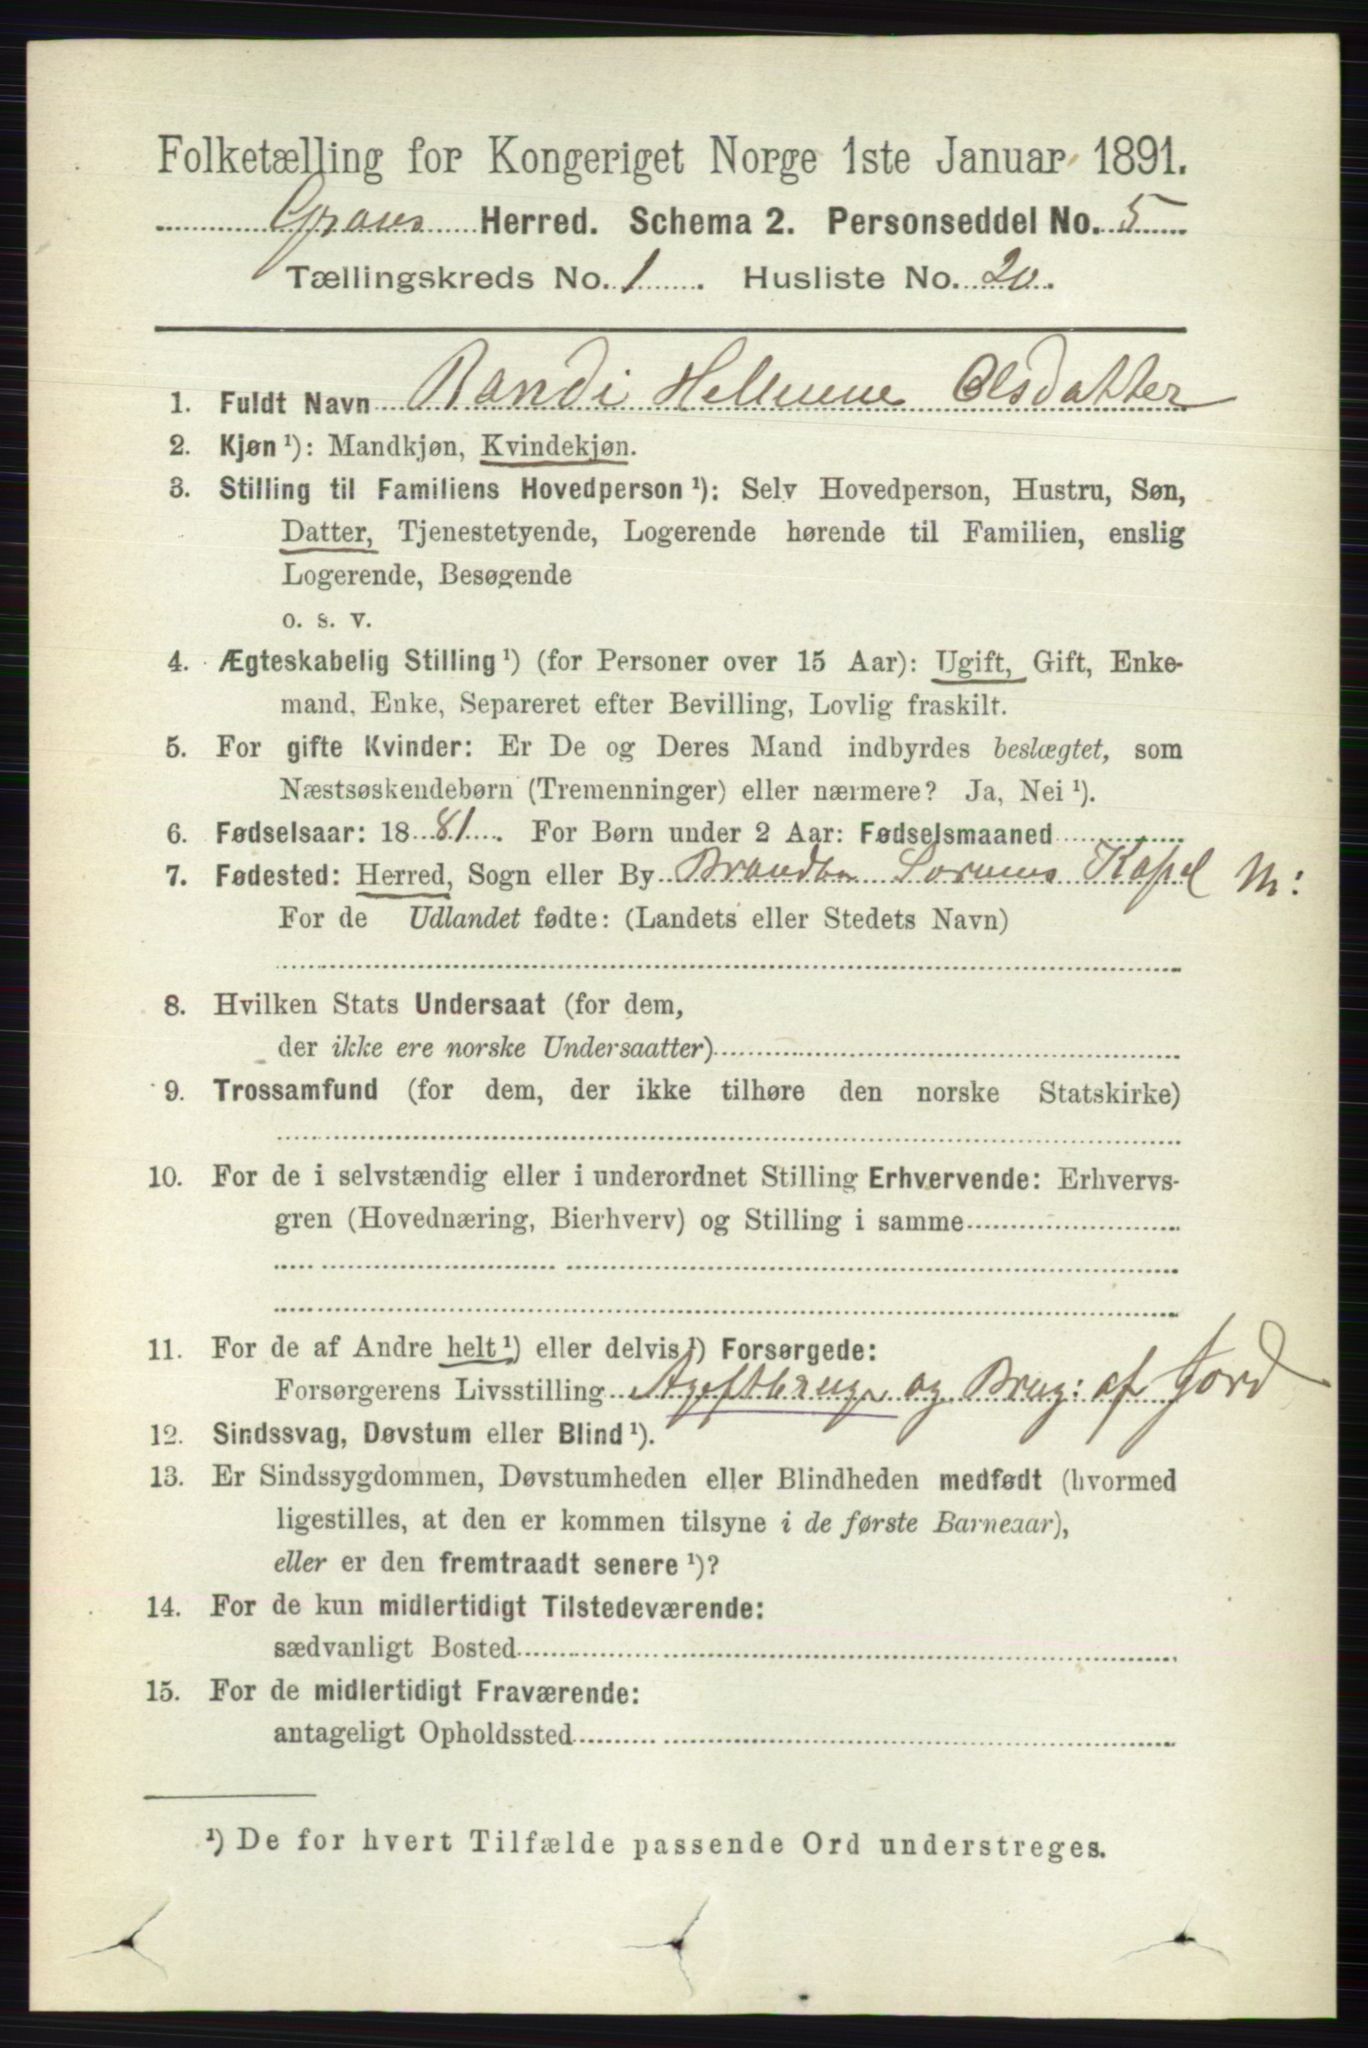 Folketælling for Kongeriget Norge 1ste Januar 1891.
Grans Herred. Schema 2. Personseddel No. 5
Tællingskreds No. 1. Husliste No. 20.
1. Fuldt Navn Randi Helmine Olsdatter
2. Kjøn ¹): Mandkjøn, Kvindekjøn.
3. Stilling til Familiens Hovedperson ¹): Selv Hovedperson, Hustru, Søn,
Datter, Tjenestetyende, Logerende hørende til Familien, enslig
Logerende, Besøgende
o. s. v.
4. Ægteskabelig Stilling ¹) (for Personer over 15 Aar): Ugift, Gift, Enke-
mand, Enke, Separeret efter Bevilling, Lovlig fraskilt.
5. For gifte Kvinder: Er De og Deres Mand indbyrdes beslægtet, som
Næstsøskendebørn (Tremenninger) eller nærmere? Ja, Nei ¹).
6. Fødselsaar: 1881. For Børn under 2 Aar: Fødselsmaaned
7. Fødested: Herred, Sogn eller By Brandbu Sørums Kapel M:
For de Udlandet fødte: (Landets eller Stedets Navn)
8. Hvilken Stats Undersaat (for dem,
der ikke ere norske Undersaatter)
9. Trossamfund (for dem, der ikke tilhøre den norske Statskirke)
10. For de i selvstændig eller i underordnet Stilling Erhvervende: Erhvervs-
gren (Hovednæring, Bierhverv) og Stilling i samme
11. For de af Andre helt ¹) eller delvis ¹) Forsørgede:
Forsørgerens Livsstilling og Brug: af Jord
12. Sindssvag, Døvstum eller Blind ¹).
13. Er Sindssygdommen, Døvstumheden eller Blindheden medfødt (hvormed
ligestilles, at den er kommen tilsyne i de første Barneaar),
eller er den fremtraadt senere ¹)?
14. For de kun midlertidigt Tilstedeværende:
sædvanligt Bosted
15. For de midlertidigt Fraværende:
antageligt Opholdssted
¹) De for hvert Tilfælde passende Ord understreges.